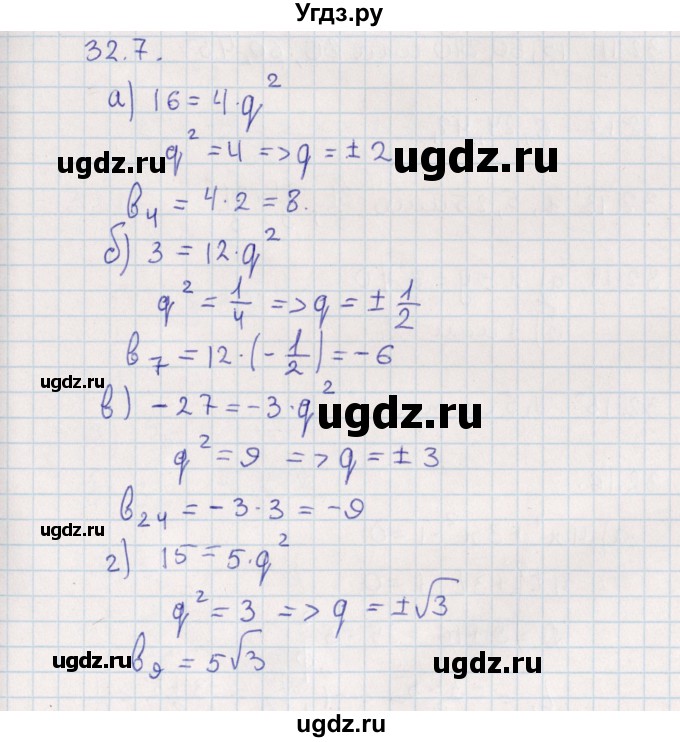 Угдз.ру
32.7.
а) 16 = 4·q²
q² = 4 => q = ± 2
ugdz.ru ugdz.ru
в₄ = 4·2 = 8.
б) 3 = 12·q²
q² = 1/4 => q = ± 1/2
в₇ = 12·(-1/2) = -6
ugdz.ru
в) -27 = -3·q²
ugdz.ru
q² = 9 => q = ± 3
в₂₄ = -3·3 = -9
ugdz.ru
г) 15 = 5·q²
q² = 3 => q = ±√3
в₉ = 5√3
ugdz.ru ugdz.ru
ugdz.ru